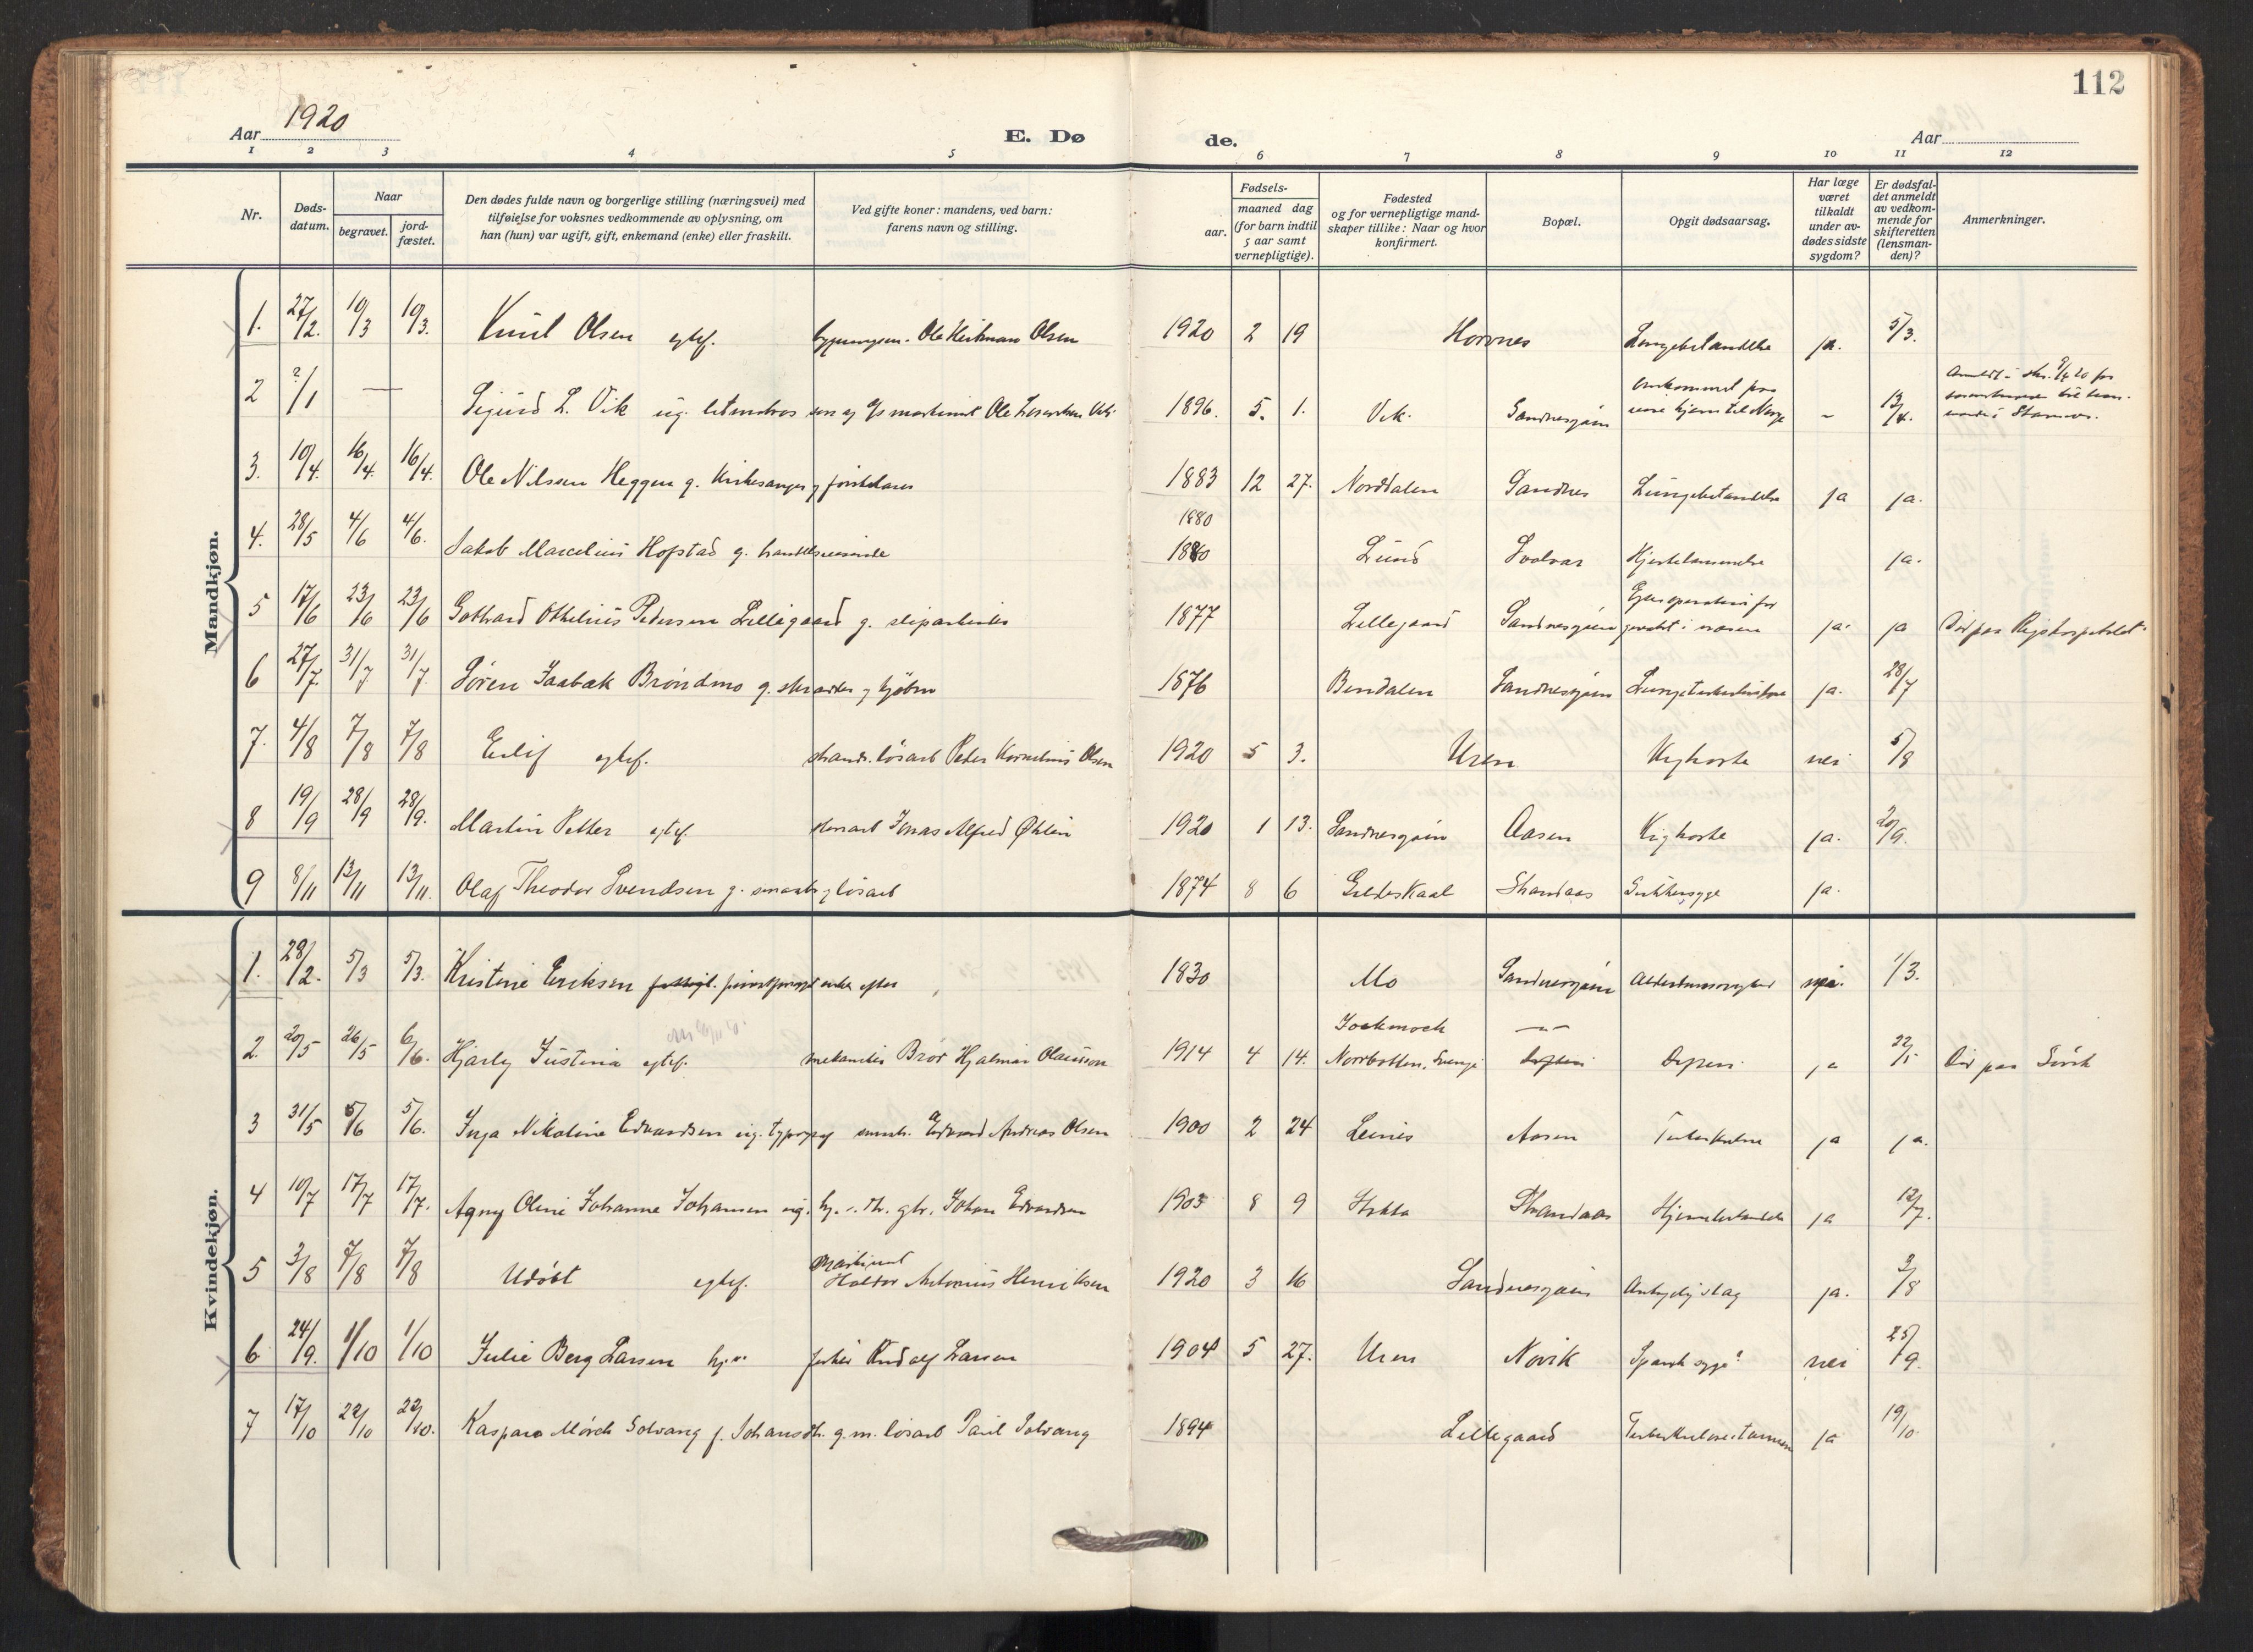 112
Aar 1920
E. Dø de.
Aar
1 2 3 4 5 6 7 8 9 10 11 12
Nr.
Døds-datum.
Naar
begravet.
jord-fæstet.
Den dødes fulde navn og borgerlige stilling (næringsvei) med
tilføielse for voksnes vedkommende av oplysning, om
han (hun) var ugift, gift, enkemand (enke) eller fraskilt.
Ved gifte koner: mandens, ved barn:
farens navn og stilling.
Fødsels-
aar.
maaned dag
(for barn indtil
5 aar samt
vernepligtige).
Fødested
og for vernepligtige mand-
skaper tillike: Naar og hvor
konfirmert.
Bopæl.
Opgit dødsaarsag.
Har læge
været
tilkaldt
under av-
dødes sidste
sygdom?
Er dødsfal-
det anmeldt
av vedkom-
mende for
skifteretten
(lensman-
den)?
Anmerkninger.
Mandkjøn.
1. 27/2. 10/3 10/3. Knut Olsen egtef. Ole Olsen 1920 2 19 Hornes Lungebetændelse ja. 5/3.
2 ?/1 — Sigurd L. Vik ug. Ole Vik 1896. 5. 1. Vik. Sandnesjøen omkommet paa hjem til Norge - 13/4.
3. 10/4. 16/4. 16/4. Ole Nilssen Heggen g. Kirkesanger 1883 12 27. Norddalen Sandnes Lungebetændelse ja ja.
1880
4. 28/5 4/6 4/6. Jakob Marcelius Hofstad g. handelsreisende 1880 Lund Svolvær Hjertelammelse ja.
5 17/6 23/6 23/6 Gothard Othelius Pedersen Lillegaard g. sliparbeider 1877 Lillegaard Sandnesjøen i næsen ja. ja Død paa Rigshospitalet
6 27/7. 31/7 31/7. Søren Jaabæk Brøndmo g. 1876 Bindalen Sandnesjøen Lungetuberkulose ja. 28/7
7. 4/8 7/8 7/8 Eilif egtef. løsarb Peder Kornelius Olsen 1920 5 3. Uren Kighoste nei 5/8
8 19/9 28/9 28/9. Martin Petter egtef. Jonas Alfred Øhlin 1920 1 13. Sandnesjøen Aasen Kighoste ja. 20/9.
9 8/11 13/11 13/11. Olaf Theodor Svendsen g. løsarb 1874 8 6 Gildeskaal Strandaas Sukkersyge ja.
Kvindekjøn.
1. 29/2. 5/3 5/3. Kristine Eriksen enke efter 1830 Mo Sandnesjøen Alderdomssvaghed 1/3.
Jockmock —"—
2. 20/5 26/5 6/6. Hjørdy Justina egtef. mekaniker Bror Hjalmar Olausson 1914 4 14. Norrbotten, Sverige ja 22/5 Død paa
3 31/5 5/6 5/6. Inga Nikoline Edvardsen ug. Edvard Andreas Olsen 1900 2 24 Leines Aasen Tuberkulose ja ja.
4 10/7 17/7 17/7. Agny Oline Johanne Johansen ug. Johan Edvardsen 1903 8 9 Stokka Strandaas ja 12/7.
5 3/8 7/8 7/8 Udøbt egtef. maskinist Haldor Antonius Henriksen 1920 3 16 Sandnesjøen ja. 3/8
6 24/9. 1/10 1/10 Julie Berg Larsen fisker Rudolf Larsen 1904 5 27. Uren Novik Spansk syge? nei 25/9.
7 17/10 22/10 22/10. Kaspara Mørch Solvang f. Johansdtr. g. m. løsarb Paul Solvang 1894 Lillegaard ja 19/10